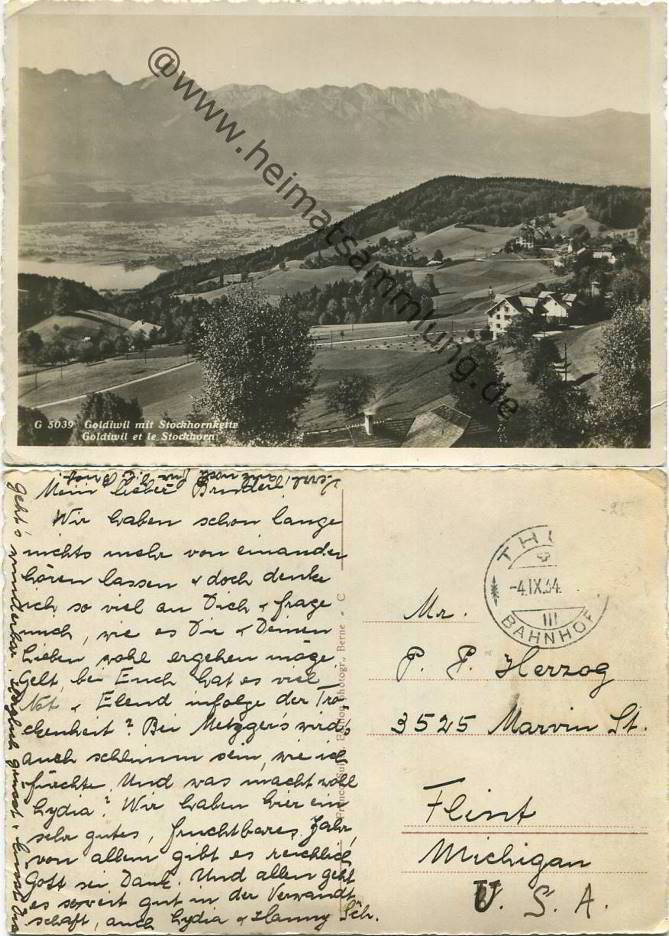 @www.heimatsammlung.de
G 5039 Goldiwil mit Stockhornkette
Goldiwil et le Stockhorn
Mein lieber Bruder!
Wir haben schon lange
nichts mehr von einander
hören lassen & doch denke
ich so viel an Dich & frage
mich, wie es Dir & Deinen
Lieben wohl ergehen mage.
Gelt, bei Euch hat es viel
Not & Elend infolge der Tro
ckenheit? Bei Metzgers wird's
auch schlimm sein, wie ich
fürchte. Und was macht wohl
Lydia? Wir haben hier ein
sehr gutes, fruchtbares Jahr,
von allem gibt es reichlich
Gott sei Dank. Und allen geht
es soweit gut in der Verwandt
schaft, auch Lydia & Hanny Sch.
geht's wunderbar. Herzlich grüsst &
THU
-4.IX.34.
III
BAHNHOF
Photogr., Berne
Mr.
P. P. Herzog
3525 Marvin St.
Flint
Michigan
U. S. A.